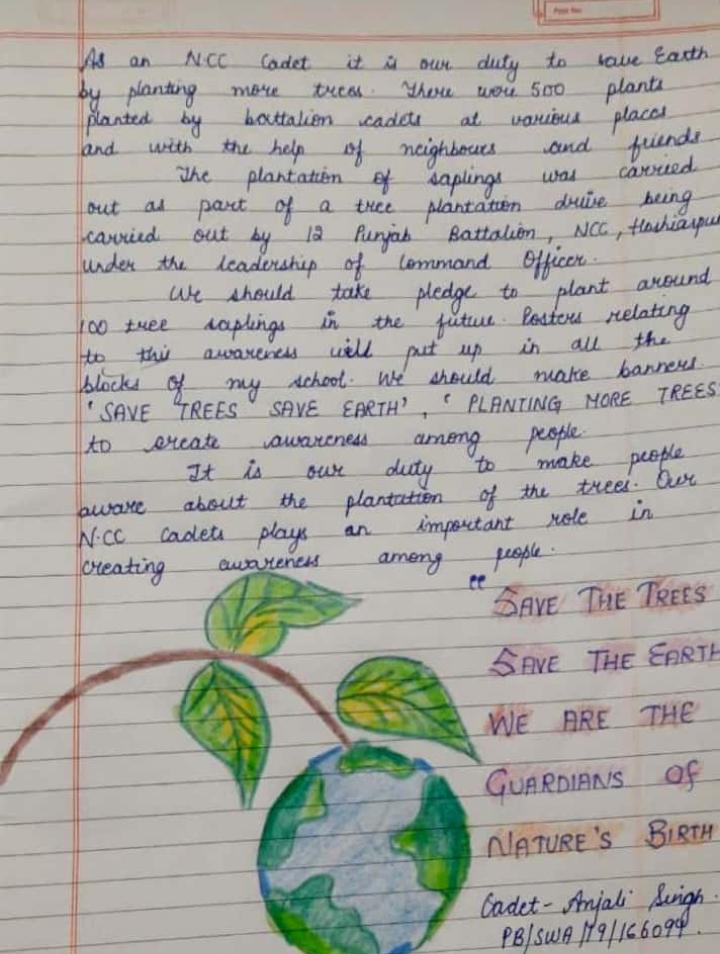 As an N.CC Cadet it is our duty to save Earth
by planting more trees. There were 500 plants
planted by battalion cadets at various places
and with the help of neighbours and friends
The plantation of saplings was carried
out as part of a tree plantation drive being
carried out by 12 Punjab Battalion, NCC, Hoshiarpur
under the leadership of Command Officer.
We should take pledge to plant around
100 tree saplings in the future. Posters relating
to this awareness will put up in all the
blocks of my school. We should make banners.
'SAVE TREES SAVE EARTH', 'PLANTING MORE TREES
to create awareness among people.
It is our duty to make people
aware about the plantation of the trees. Our
N.CC Cadets plays an important role in
creating awareness among people.
"SAVE THE TREES
SAVE THE EARTH
WE ARE THE
GUARDIANS OF
NATURE'S BIRTH
Cadet- Anjali Singh.
PB/SWA/19/166094.